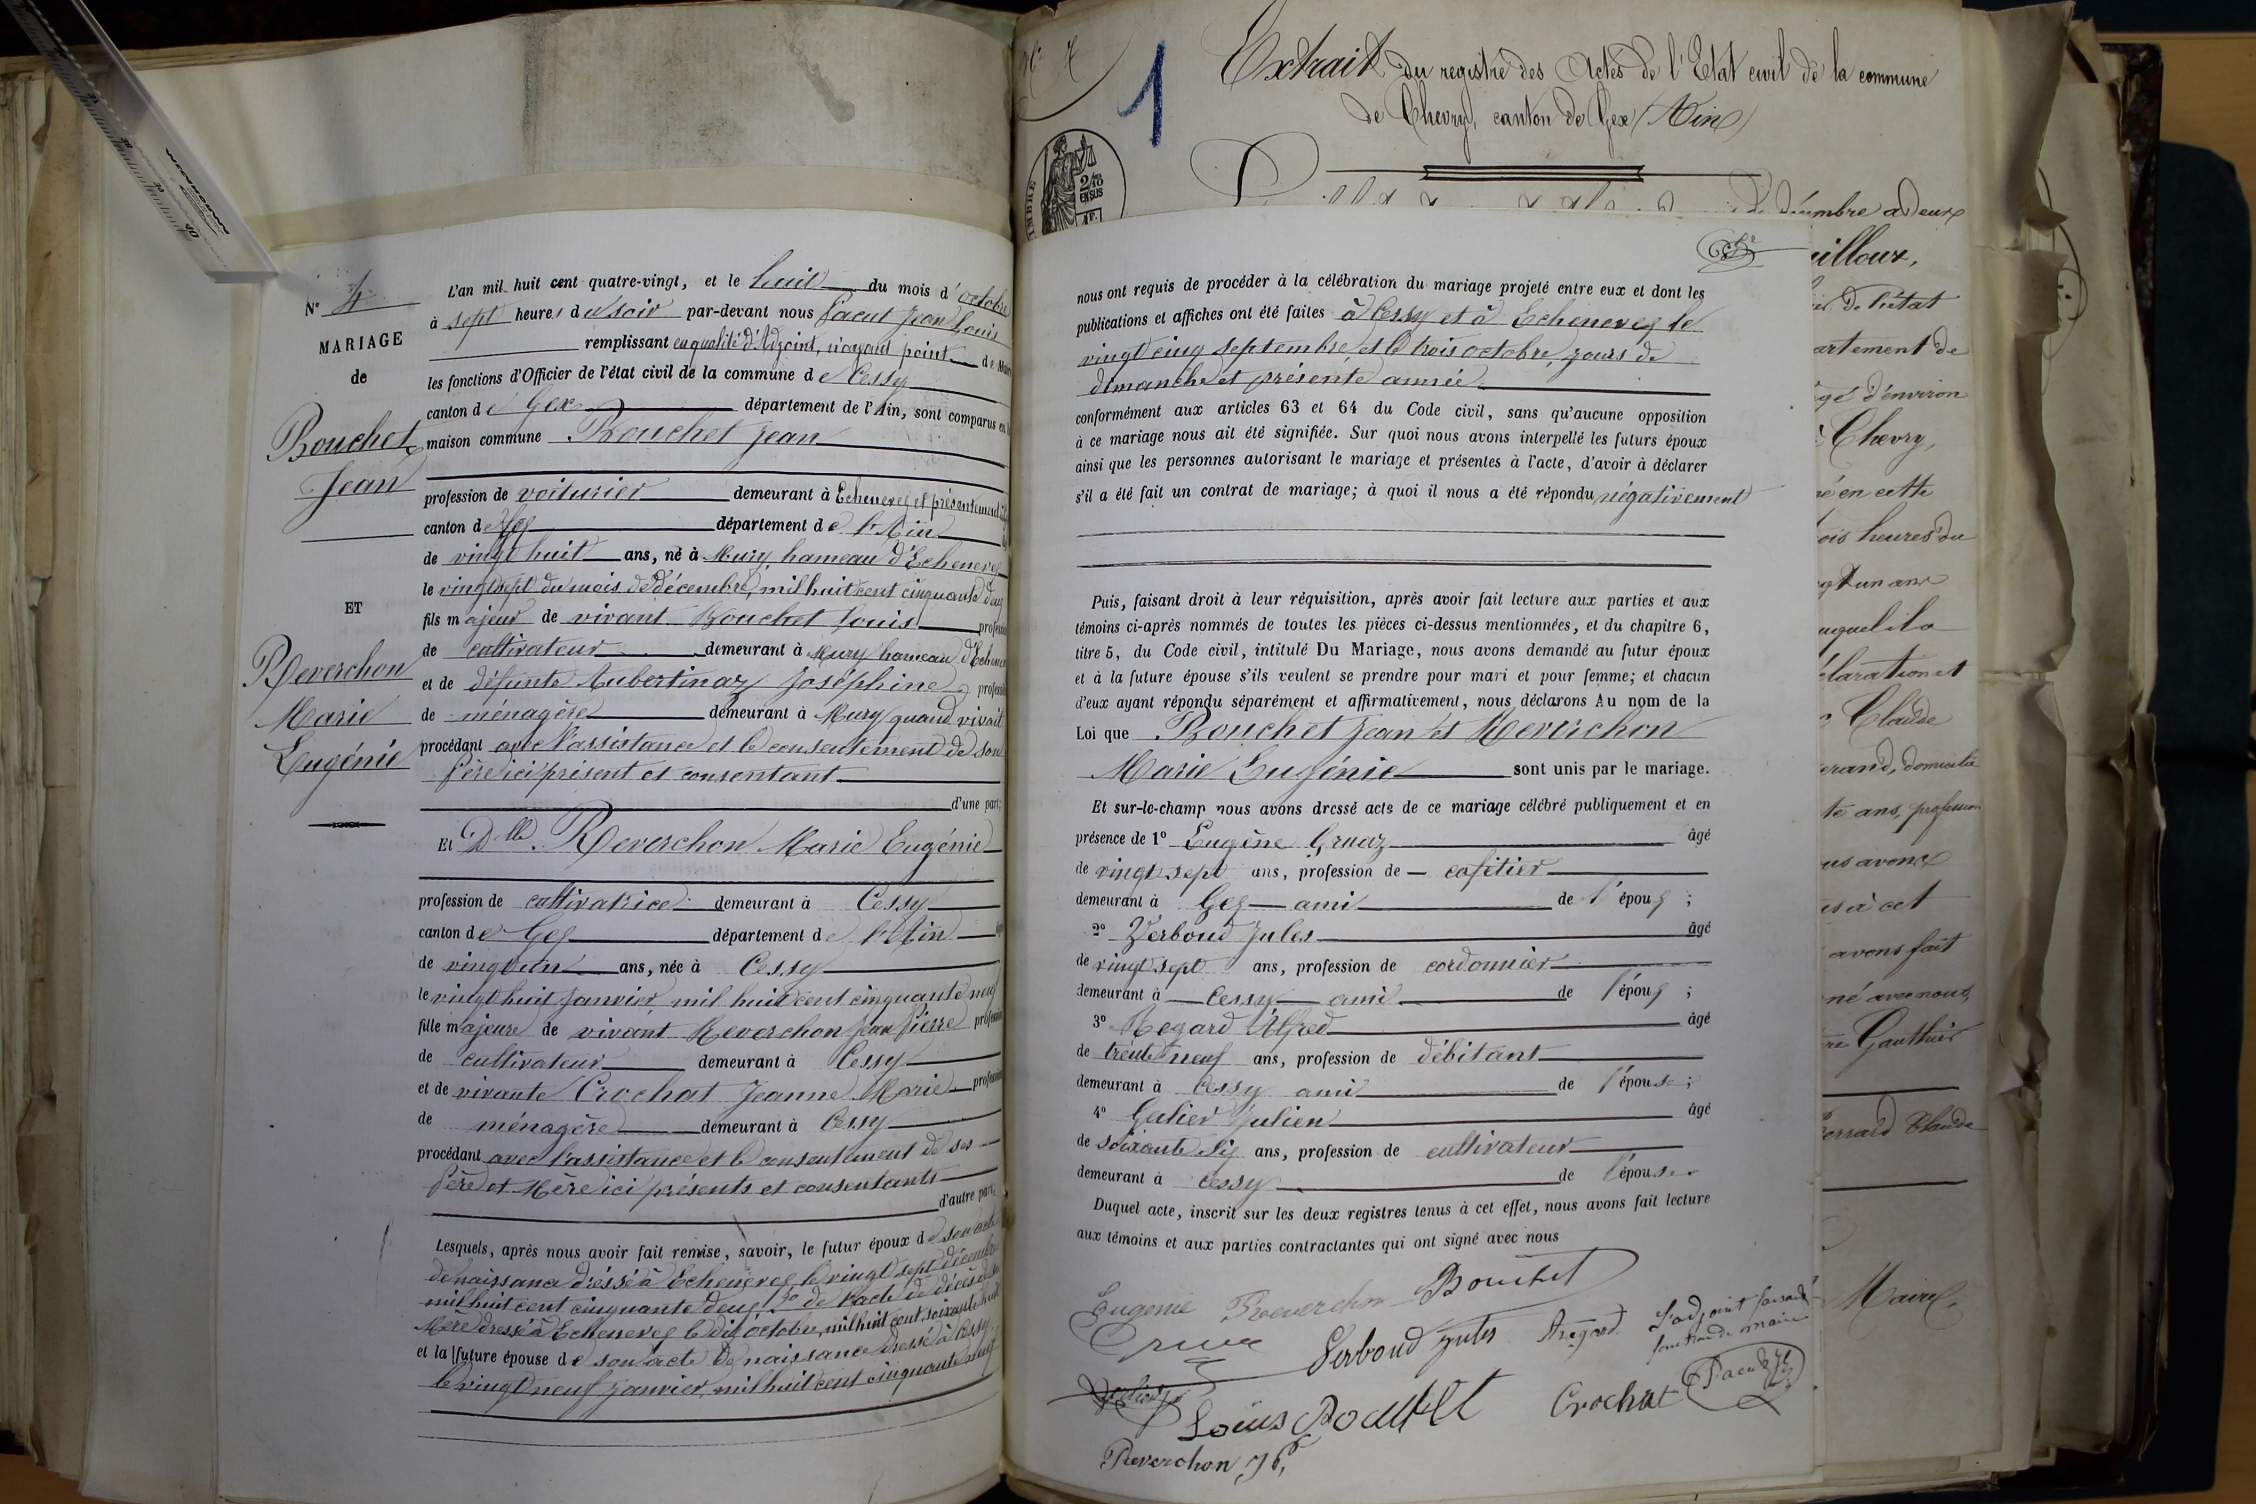 N° 4
MARIAGE
de
Bouchet
Jean
ET
Reverchon
Marie
Eugénie
L'an mil huit cent quatre-vingt, et le huit du mois d'octobre
à sept heures du soir par-devant nous Pacut Jean Louis
remplissant en qualité d'Adjoint, n'ayant point de Maire
les fonctions d'Officier de l'état civil de la commune de Cessy
canton de Gex département de l'Ain, sont comparus en la
maison commune Bouchet Jean
profession de voiturier demeurant à Echenevex et présentement
canton de Gex département de l'Ain
de vingt huit ans, né à Mury, hameau d'Echenevex
le vingt sept du mois de décembre, mil huit cent cinquante deux
fils majeur de vivant Bouchet Louis profession
de cultivateur demeurant à Mury hameau d'Echenevex
et de défunte Aubertinaz Joséphine profession
de ménagère demeurant à Mury quand vivait
procédant avec l'assistance et le consentement de son
Père ici présent et consentant
d'une part;
Et Dlle Reverchon Marie Eugénie
profession de cultivatrice demeurant à Cessy
canton de Gex département de l'Ain
de vingt un ans, née à Cessy
le vingt huit Janvier, mil huit cent cinquante neuf
fille majeure de vivant Reverchon Jean Pierre profession
de cultivateur demeurant à Cessy
et de vivante Crochat Jeanne Marie profession
de ménagère demeurant à Cessy
procédant avec l'assistance et le consentement de ses
Père et Mère ici présents et consentants
d'autre part;
Lesquels, après nous avoir fait remise, savoir, le futur époux de son acte
de naissance dressé à Echenevex le vingt sept décembre
mil huit cent cinquante deux, 2° de l'acte de décès de sa
Mère dressé à Echenevex le dix octobre, mil huit cent soixante huit
et la future épouse de son acte de naissance dressé à Cessy
le vingt neuf janvier, mil huit cent cinquante neuf
N° 4
1
Extrait du registre des Actes de l'Etat civil de la commune
de Chevry, canton de Gex (Ain)
TIMBRE
2/10
EN SUS
décembre a deux
nous ont requis de procéder à la célébration du mariage projeté entre eux et dont les
publications et affiches ont été faites à Cessy et à Echenevex le
vingt cinq septembre et le trois octobre, jours de
dimanche et présente année
conformément aux articles 63 et 64 du Code civil, sans qu'aucune opposition
à ce mariage nous ait été signifiée. Sur quoi nous avons interpellé les futurs époux
ainsi que les personnes autorisant le mariage et présentes à l'acte, d'avoir à déclarer
s'il a été fait un contrat de mariage; à quoi il nous a été répondu négativement
Puis, faisant droit à leur réquisition, après avoir fait lecture aux parties et aux
témoins ci-après nommés de toutes les pièces ci-dessus mentionnées, et du chapitre 6,
titre 5, du Code civil, intitulé Du Mariage, nous avons demandé au futur époux
et à la future épouse s'ils veulent se prendre pour mari et pour femme; et chacun
d'eux ayant répondu séparément et affirmativement, nous déclarons Au nom de la
Loi que Bouchet Jean et Reverchon
Marie Eugénie sont unis par le mariage.
Et sur-le-champ nous avons dressé acte de ce mariage célébré publiquement et en
présence de 1° Eugène Gruaz âgé
de vingt sept ans, profession de cafetier
demeurant à Gex ami de l'époux;
2° Verboud Jules âgé
de vingt sept ans, profession de cordonnier
demeurant à Cessy ami de l'époux;
3° Regard Alfred âgé
de trente neuf ans, profession de débitant
demeurant à Cessy ami de l'épouse;
4° Julien âgé
de soixante six ans, profession de cultivateur
demeurant à Cessy de l'épouse
Duquel acte, inscrit sur les deux registres tenus à cet effet, nous avons fait lecture
aux témoins et aux parties contractantes qui ont signé avec nous
Eugenie Reverchon Bouchet
Verboud Jules Regard L'adjoint faisant
fonction de maire
Louis Bouchet Crochat Pacut
Reverchon J P,
de l'état
artement de
âgé d'environ
Chevry,
né en cette
ois heures du
gt un ans
uquel il a
claration et
Claude
erand, domicilié
te ans, profession
us avons
is à cet
avons fait
né avec nous,
Gauthier
Claude
Maire